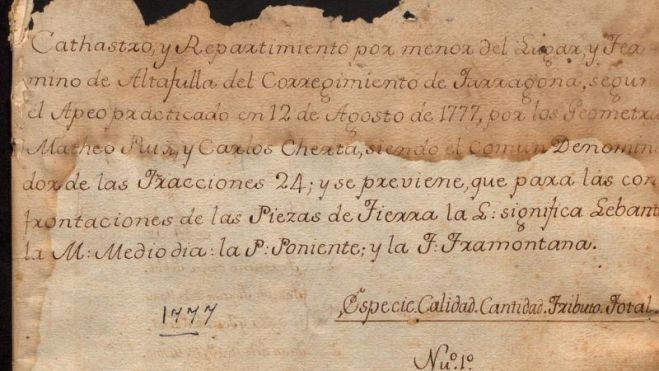 Cathastro, y Repartimiento por menor del Lugar, y Ter
mino de Altafulla del Corregimiento de Tarragona, segun
el Apeo practicado en 12 de Agosto de 1777, por los Geometra
Matheo Ruix y Carlos Cherta, siendo el Comun Denomina
dor de las Fracciones 24; y se previene, que para las con
frontaciones de las Piezas de Tierra la L: significa Lebant
la M: Mediodia: la P: Poniente; y la T: Tramontana.
1777
Especie. Calidad. Cantidad. Tributo. Total.
Nu.º 1.º